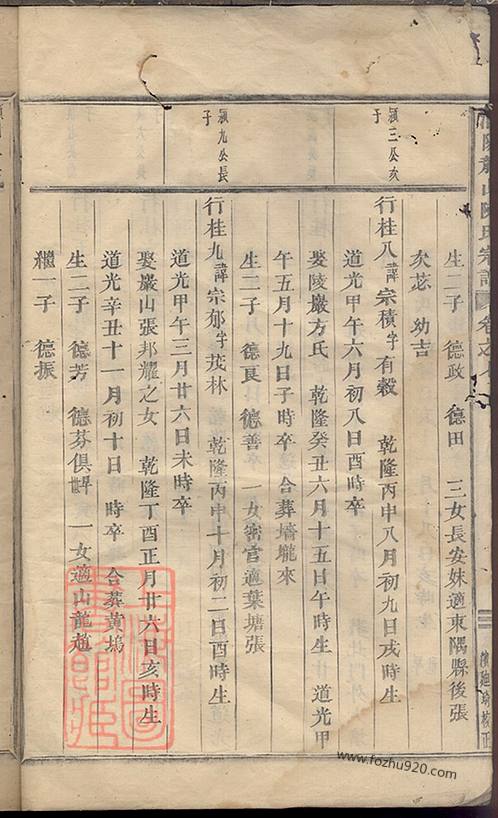 陳氏宗譜
卷之
生二子 德政 德田 三女長安妹適東隅縣後張
次苾 幼吉
穎三公次子
行桂八諱宗積字有穀 乾隆丙申八月初九日戌時生
道光甲午六月初八日酉時卒
娶陵巖方氏 乾隆癸丑六月十五日午時生 道光甲
午五月十九日子時卒 合葬墻壠來
生二子 德良 德善 一女密宫適葉塘張
穎九公長子
行桂九諱宗郁字茂林 乾隆丙申十月初二日酉時生
道光甲午三月廿六日未時卒
娶巖山張邦耀之女 乾隆丁酉正月廿六日亥時生
道光辛丑十一月初十日 時卒 合葬黄塢
生二子 德芳 德芬俱早世 一女適山龍趙
繼一子 德振
www.fozhu920.com